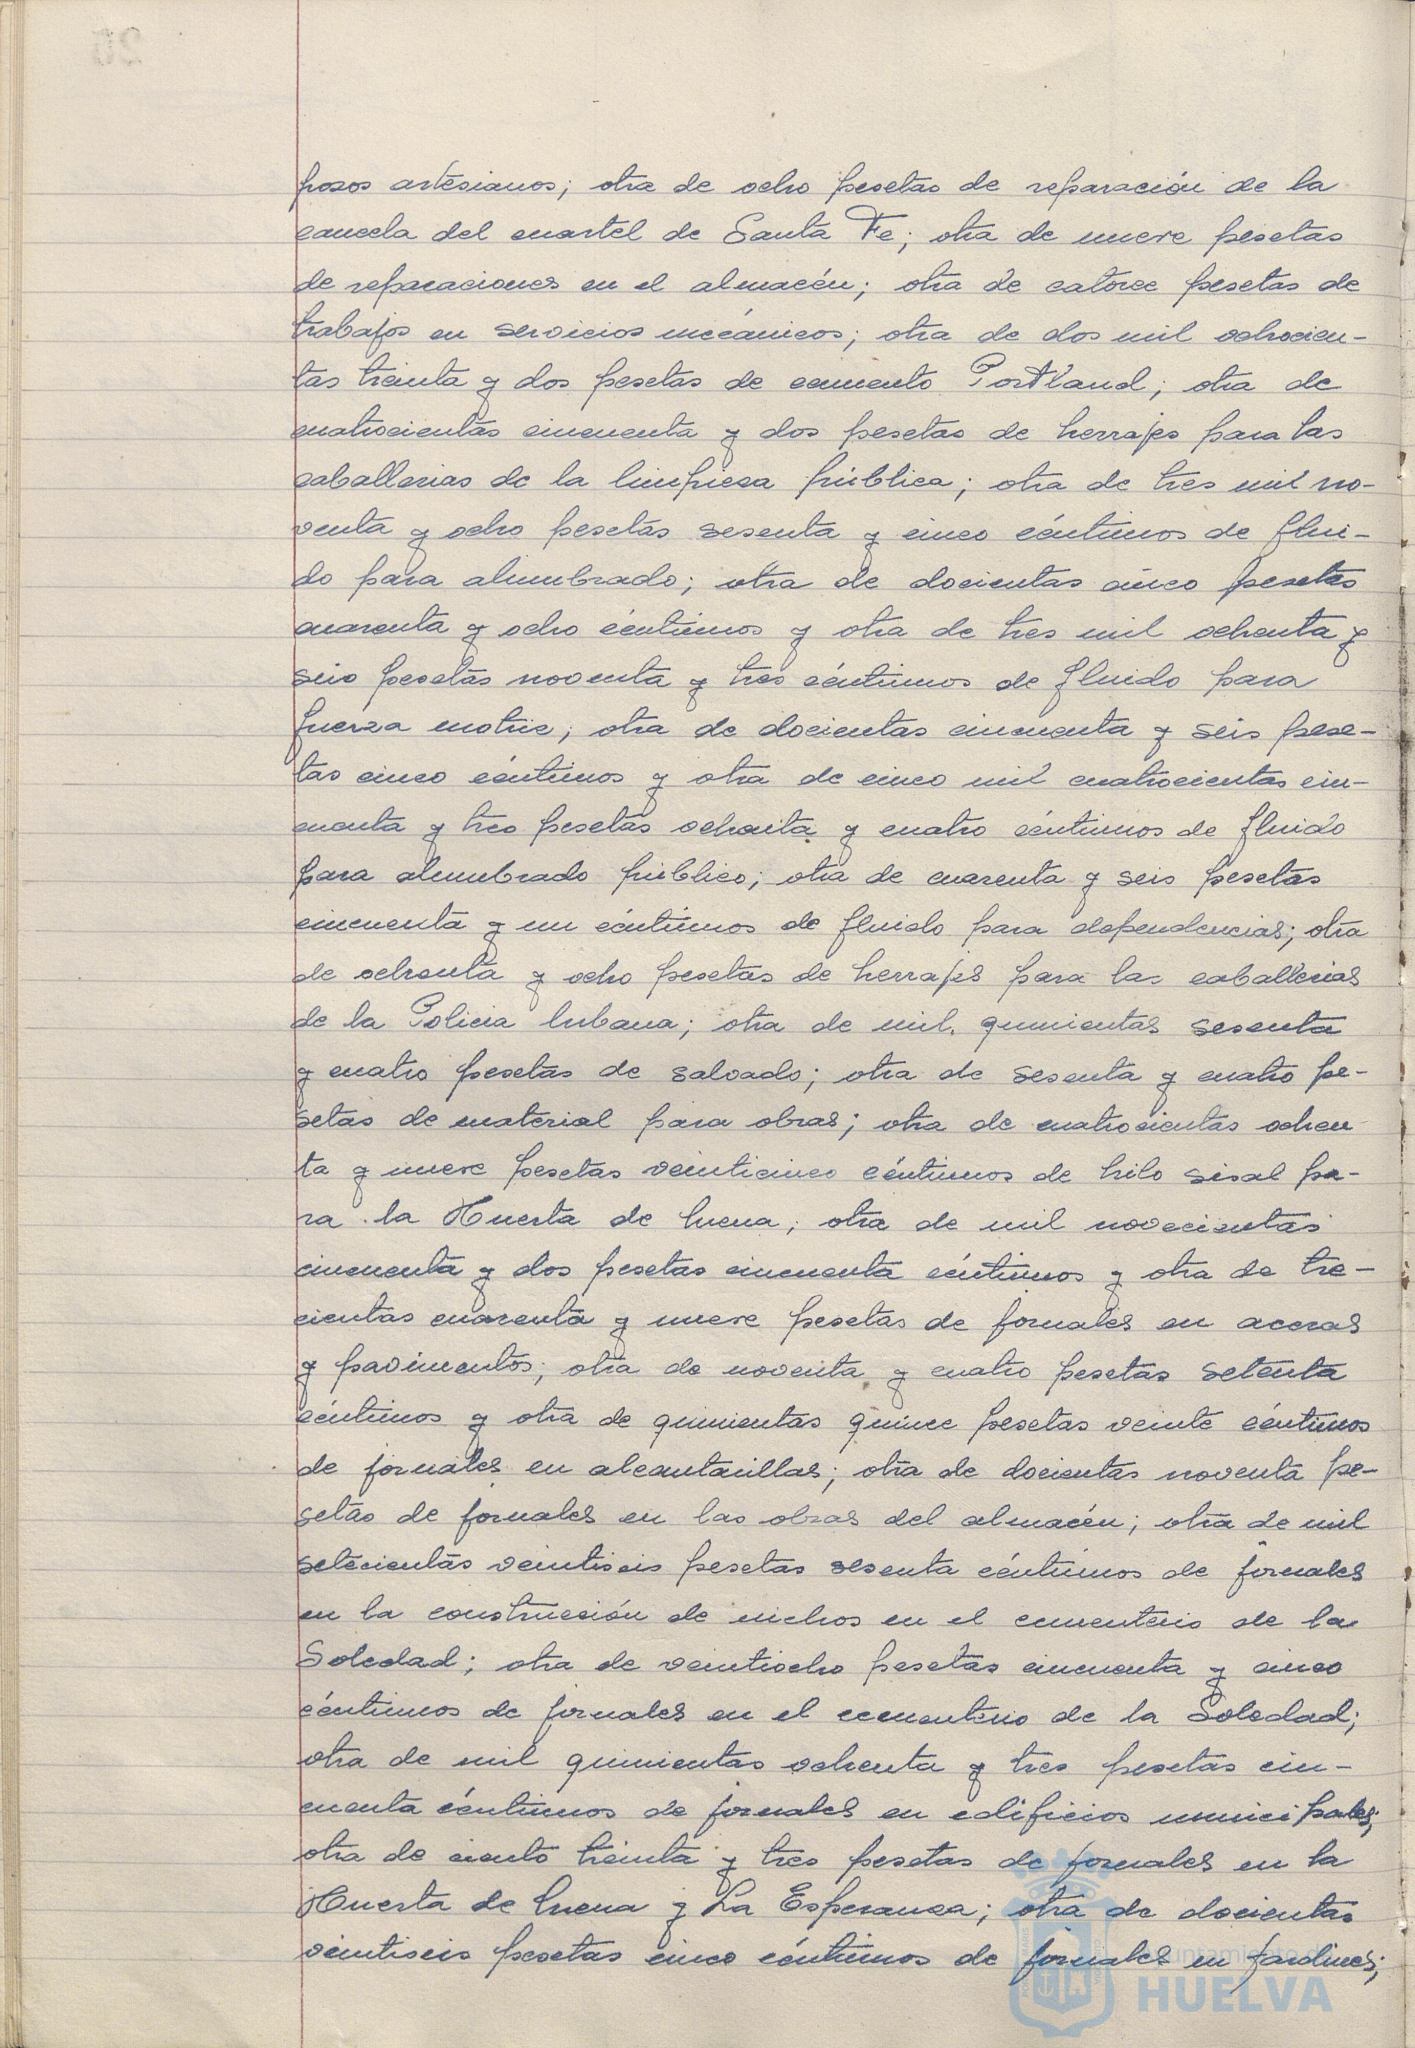 posos artesianos; otra de ocho pesetas de reparación de la
cancela del cuartel de Santa Fe; otra de nueve pesetas
de reparaciones en el almacén; otra de catorce pesetas de
trabajos en servicios mecánicos; otra de dos mil ochocien-
tas treinta y dos pesetas de cemento Portland; otra de
cuatrocientas cincuenta y dos pesetas de herrajes para las
caballerias de la limpieza pública; otra de tres mil no-
venta y ocho pesetas sesenta y cinco céntimos de flui-
do para alumbrado; otra de docientas cinco pesetas
cuarenta y ocho céntimos y otra de tres mil ochenta y
seis pesetas noventa y tres céntimos de fluido para
fuerza motriz; otra de docientas cincuenta y seis pese-
tas cinco céntimos y otra de cinco mil cuatrocientas cin-
cuenta y tres pesetas ochenta y cuatro céntimos de fluido
para alumbrado público; otra de cuarenta y seis pesetas
cincuenta y un céntimos de fluido para dependencias; otra
de ochenta y ocho pesetas de herrajes para las caballerias
de la Policia Urbana; otra de mil quinientas sesenta
y cuatro pesetas de salvado; otra de sesenta y cuatro pe-
setas de material para obras; otra de cuatrocientas ochen
ta y nueve pesetas veinticinco céntimos de hilo sisal pa-
ra la Huerta de Mena; otra de mil novecientas
cincuenta y dos pesetas cincuenta céntimos y otra de tre-
cientas cuarenta y nueve pesetas de jornales en aceras
y pavimentos; otra de noventa y cuatro pesetas setenta
céntimos y otra de quinientas quince pesetas veinte céntimos
de jornales en alcantarillas; otra de docientas noventa pe-
setas de jornales en las obras del almacén; otra de mil
setecientas veintiseis pesetas sesenta céntimos de jornales
en la construcción de nichos en el cementerio de la
Soledad; otra de veintiocho pesetas cincuenta y cinco
céntimos de jornales en el cementerio de la Soledad;
otra de mil quinientas ochenta y tres pesetas cin-
cuenta céntimos de jornales en edificios municipales;
otra de ciento treinta y tres pesetas de jornales en la
Huerta de Mena y La Esperanza; otra de docientas
veintiseis pesetas cinco céntimos de jornales en jardines;
Ayuntamiento de
HUELVA